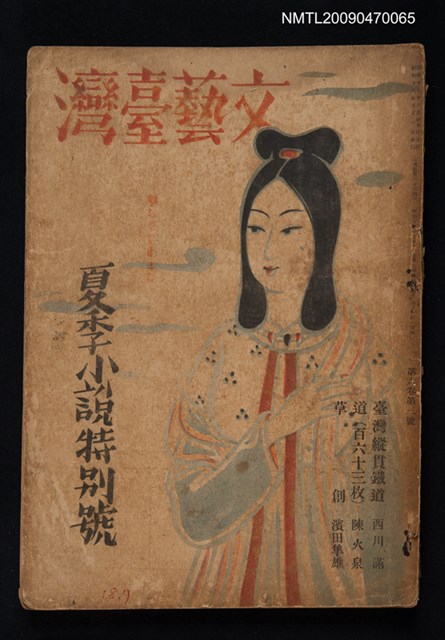 NMTL20090470065
文藝臺灣
夏季小說特別號
第六卷第三號
臺灣縱貫鐵道 西川滿
道(百六十三枚) 陳火泉
草創 濱田隼雄
18.7